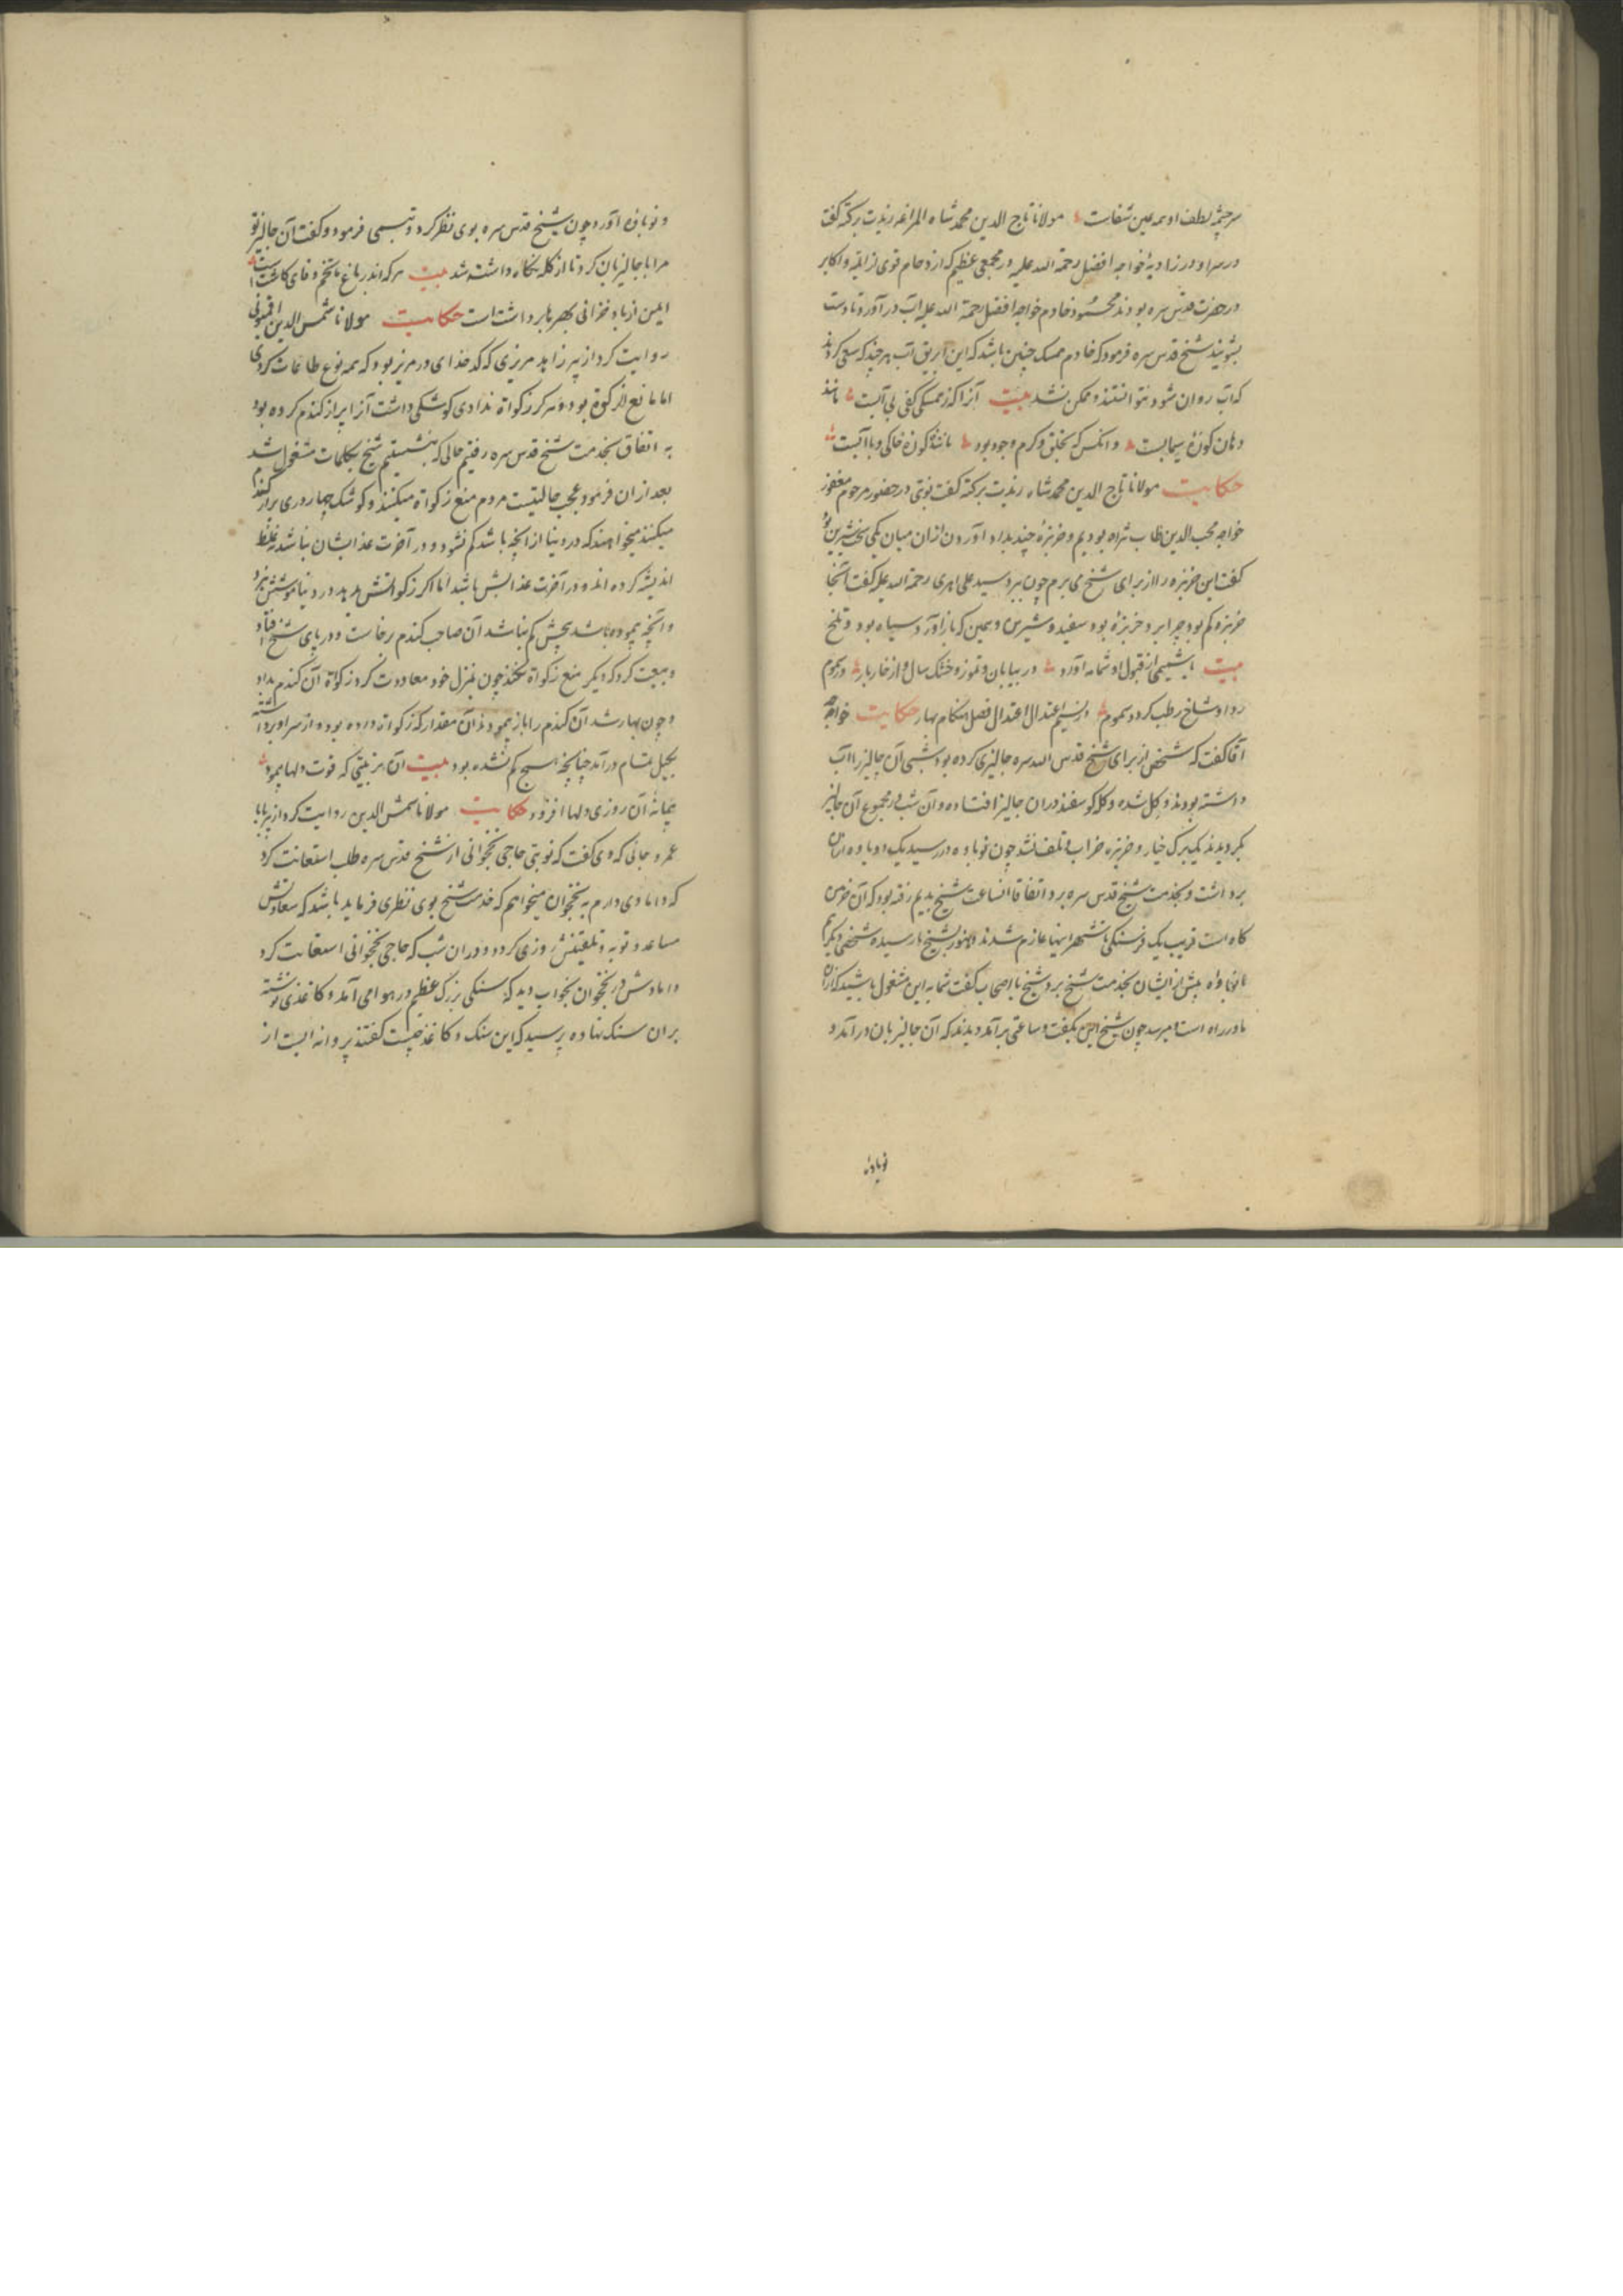 سرچشمه لطف او همه عین شفاست مولانا تاج الدین محمد شاه المراغه زیدت برکته گفت
در سراو در زاویه خواجه افضل رحمة الله علیه در مجمعی عظیم که ازدحام قوی از ائمه و اکابر
در حضرت قدس سره بودند محمود خادم خواجه افضل رحمة الله علیه آب در آورد تا دست
بشویند شیخ قدس سره فرمود که خادم ممسک چنین باشد که این ابریق آب هرچند که سعی کردند
که آب روان شود نتوانستند و ممکن نشد بیت آنرا که ز ممسکی کفی بی آبست مانند
دهان کوزه سیمابست و آنکس که بخلق و کرم وجود بود مانند کوزه خاکی و با آبست
حکایت مولانا تاج الدین محمد شاه زیدت برکته گفت نوبتی در حضور مرحوم مغفور
خواجه محب الدین طاب ثراه بودیم و خربزه چند بداد آوردن ازان میان یکی سخت شیرین بود
گفت این خربزه را از برای شیخ می برم چون ببرد سید علی اهری رحمة الله علیه گفت آنجا
خربزه کم بود چرا برد خربزه بود سفید و شیرین و همین که باز آورد سیاه بود و تلخ
بیت با شمیمی از قبول او شمامه آورد در بیابان و تموز و خشک سال از خار بار در سموم
رد او شاخ رطب کردد سموم در نسیم اعتدال اعتدال فصل هنگام بهار حکایت خواجه
آقا گفت که شخصی از برای شیخ قدس الله سره جالیزی کرده بود شبی آن جالیز را آب
داشته بودند و گل شده و گله گوسفند دران جالیز افتاده و آن شب در مجموع آن جالیز
بگردیدند یک برک خیار و خربزه خراب و تلف نشد چون نوباوه در رسید یک دو باوه ازان
برداشت و بخدمت شیخ قدس سره برد اتفاقا آنساعت شیخ بدیم رفته بود که آن خرمن
گاه است قریب یک فرسنگی تا شهر اینها عازم شدند و هنوز بشیخ نارسیده شخصی دیگر هم
نوباوه پیش از ایشان بخدمت شیخ برد شیخ با اصحاب گفت شما به این مشغول باشید که ازان
ما در راه است و میرسد چون شیخ این بگفت و ساعتی برآمد دیدند که آن جالیزبان درآمد و
نوباوه
و نوباوه آورد چون شیخ قدس سره بوی نظر کرد و تبسمی فرمود و گفت آن جالیز تو
مرا با جالیزبان کرد تا از گله نگاه داشته شد بیت هر که اندر باغ ما تخم وفای کاشته است
ایمن از باد خزانی بهرها برداشت است حکایت مولانا شمس الدین اقمیونی
روایت کرد از پیر زاهد مرزی که کدخدای در مریز بود که همه نوع طاعات کردی
اما مانع الزکوة بود و هر گز زکواة ندادی کوشکی داشت آنرا پر از گندم کرده بود
به اتفاق بخدمت شیخ قدس سره رفتیم حالی که بنشستیم شیخ بکلمات مشغول شد
بعد ازان فرمود عجب حالیست مردم منع زکواة میکنند و کوشک چهار دری پر از گندم
میکنند میخواهند که در دنیا از آنچه باشد کم نشود و در آخرت عذابشان نباشد نه غلط
اندیشه کرده اند و در آخرت عذابش باشد اما اگر زکواتش بدهد در دنیا موشش نبرد
و آنچه پیموده باشد هیچش کم نباشد آن صاحب گندم برخاست و در پای شیخ افتاد
و بیعت کرد که دیگر منع زکواة نکند چون بمنزل خود معاودت کرد زکواة آن گندم بداد
و چون بهار شد آن گندم را باز پیمودند آن مقدار که زکواة داده بود و از سر او برداشته
بجل تمام درآمد چنانچه هیچ کم نشده بود بیت آن مرتبتی که قوت دلها پیمود
پیمانه آن روزی دلها افزود حکایت مولانا شمس الدین روایت کرد از پیر بابا
عمر و جانی که وی گفت که نوبتی حاجی نخجوانی از شیخ قدس سره طلب استعانت کرد
که دامادی دارم به نخجوان میخواهم که خدمت شیخ بوی نظری فرماید باشد که سعادتش
مساعد و توبه و تلقینش روزی کردد و دران شب که حاجی نخجوانی استعانت کرد
دامادش در نخجوان بخواب دید که سنگی بزرگ عظیم در هوا می آمد و کاغذی نوشته
بران سنگ نهاده پرسید که این سنگ و کاغذ چیست گفتند پروانه ایست از